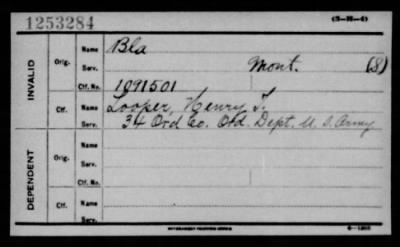 1253284
(3-H-4)
INVALID
Orig.
Name Bla
Serv. Mont. (S)
Ctf. No. 1091501
Ctf.
Name Looper, Henry T.
Serv. 34 Ord Co. Ord. Dept. U.S. Army
DEPENDENT
Orig.
Name
Serv.
Ctf. No.
Ctf.
Name
Serv.
GOVERNMENT PRINTING OFFICE